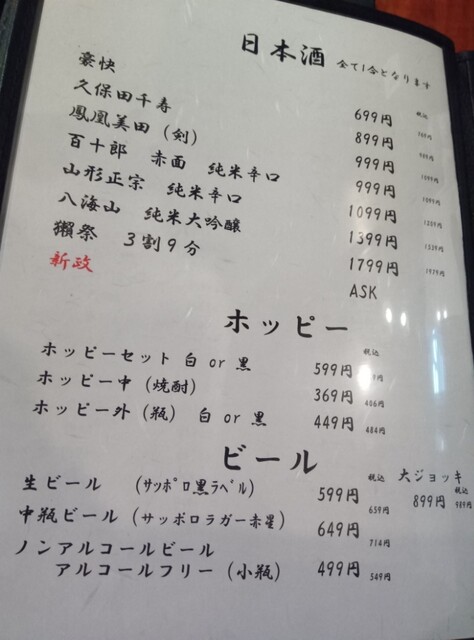 日本酒 全て1合となります
税込
豪快 699円
久保田千寿 899円
鳳凰美田（剣） 999円 1099円
百十郎 赤面 純米辛口 999円 1099円
山形正宗 純米辛口 1099円 1209円
八海山 純米大吟醸 1399円 1539円
獺祭 3割9分 1799円 1979円
新政 ASK
ホッピー
税込
ホッピーセット 白 or 黒 599円
ホッピー中（焼酎） 369円 406円
ホッピー外（瓶） 白 or 黒 449円 484円
ビール
税込 大ジョッキ
生ビール （サッポロ黒ラベル） 599円 659円 899円 税込 989円
中瓶ビール（サッポロラガー赤星） 649円 714円
ノンアルコールビール
アルコールフリー（小瓶） 499円 549円